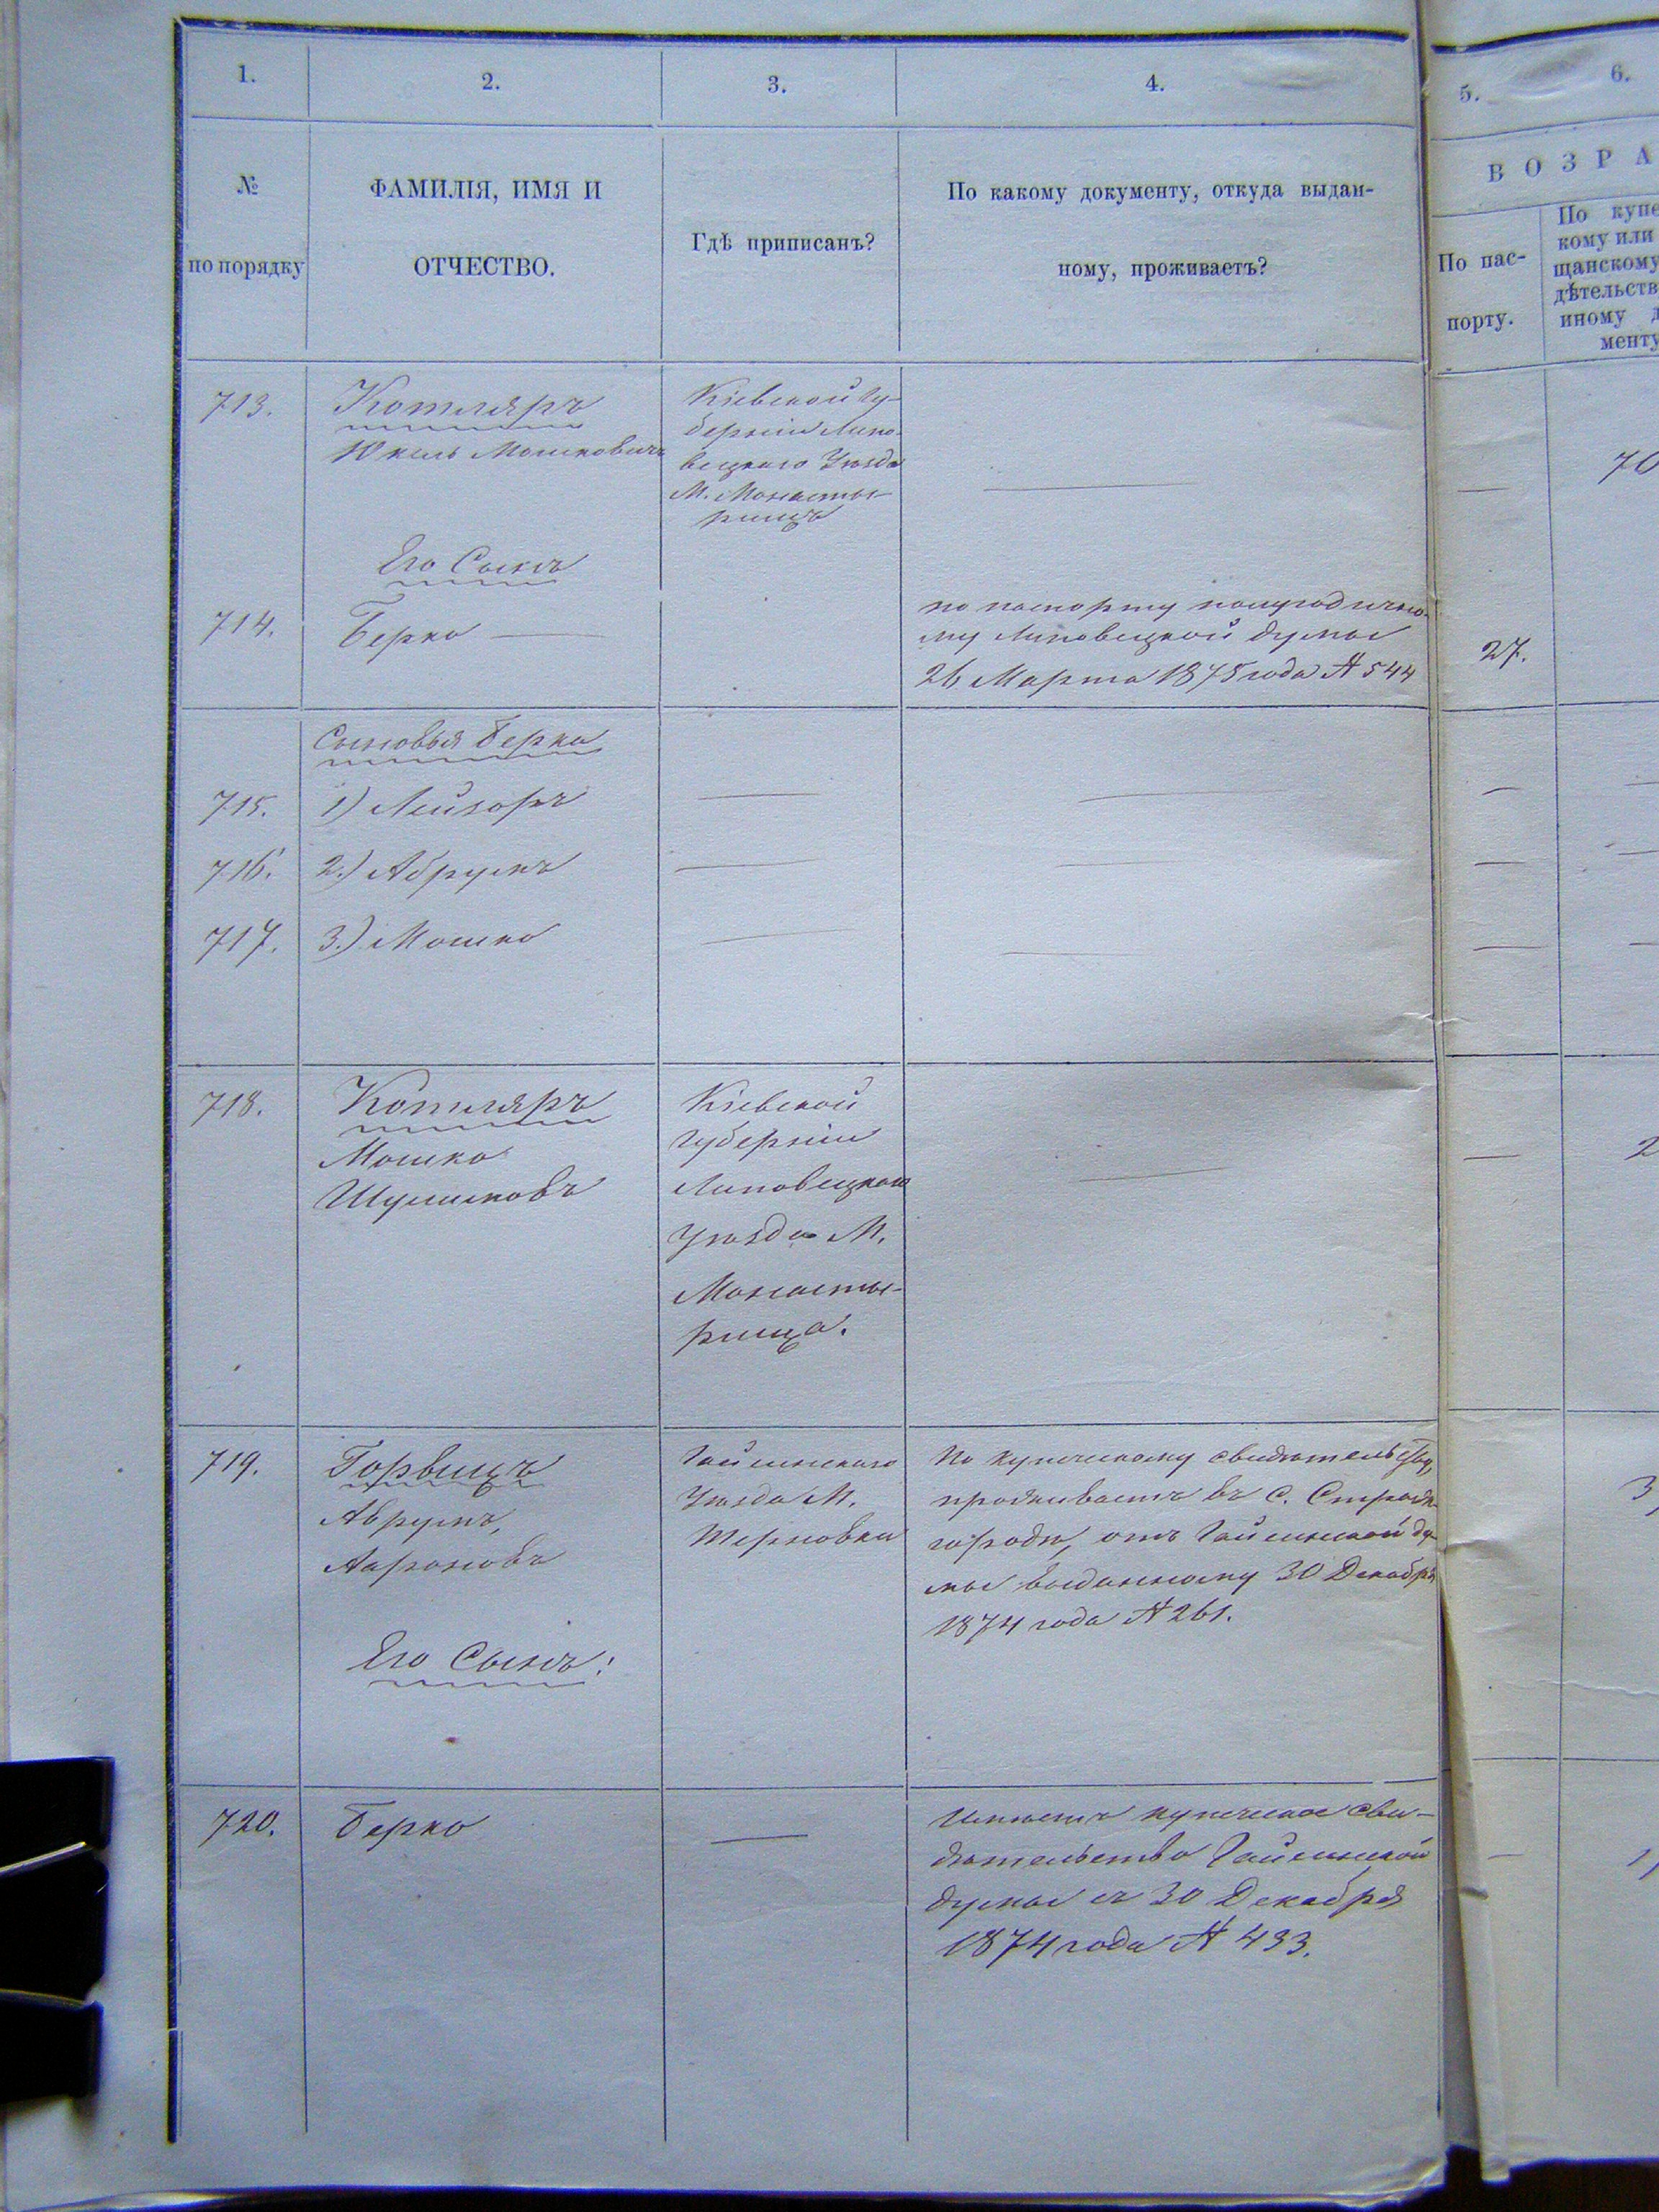 1.
2.
3.
4.
5.
6.
№
по порядку
ФАМИЛІЯ, ИМЯ И
ОТЧЕСТВО.
Гдѣ приписанъ?
По какому документу, откуда выдан-
ному, проживаетъ?
ВОЗРА
По пас-
порту.
По купе
кому или
щанскому
дѣтельств
иному д
менту
713.
Котляръ
Юкель Мошковичъ
Кіевской Гу-
берніи Липо-
вецкаго Уѣзда
М. Монасты-
рищъ
—
—
70
Его Сынъ
714.
Берко —
по паспорту полугодично-
му Липовецкой думы
26 Марта 1875 года № 544
27.
Сыновья Берка
715.
1) Лейзоръ
—
—
—
—
716.
2.) Абрумъ
—
—
—
—
717.
3.) Мошко
—
—
—
—
718.
Котляръ
Мошко
Шулимовъ
Кіевской
Губерніи
Липовецкаго
Уѣзда М.
Монасты-
рища.
—
—
2
719.
Горвицъ
Аврумъ,
Аароновъ
Гайсинскаго
Уѣзда М.
Терновки
По купеческому свидѣтельству,
проживаетъ въ С. Страж
городѣ, отъ Гайсинской ду
мы выданному 30 Декабря
1874 года № 261.
3
Его Сынъ:
720.
Берко
—
Имѣетъ купеческое сви-
дѣтельство Гайсинской
думы съ 30 Декабря
1874 года № 433.
—
1